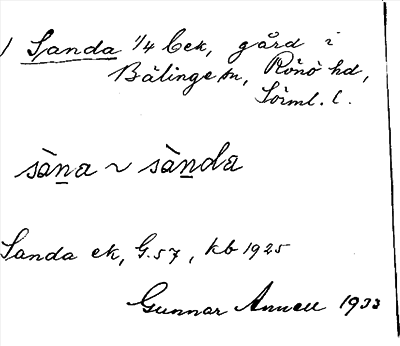 ) Sanda 1/4 Cek, gård i
Bälinge sn, Rönö hd,
Sörml. l.
sàṉa ~ sàṉda
Sanda ek, G.57, kb 1925
Gunnar Annell 1933